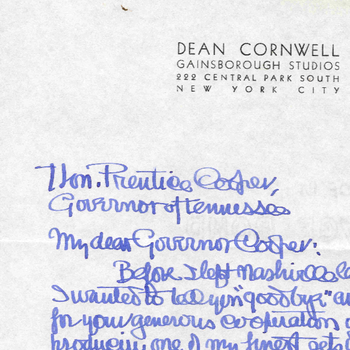 DEAN CORNWELL
GAINSBOROUGH STUDIOS
222 CENTRAL PARK SOUTH
NEW YORK CITY
Hon. Prentice Cooper,
Governor of Tennessee
My dear Governor Cooper:
Before I left Nashville
I wanted to tell you "goodbye" an
for your generous cooperation
producing one of my finest